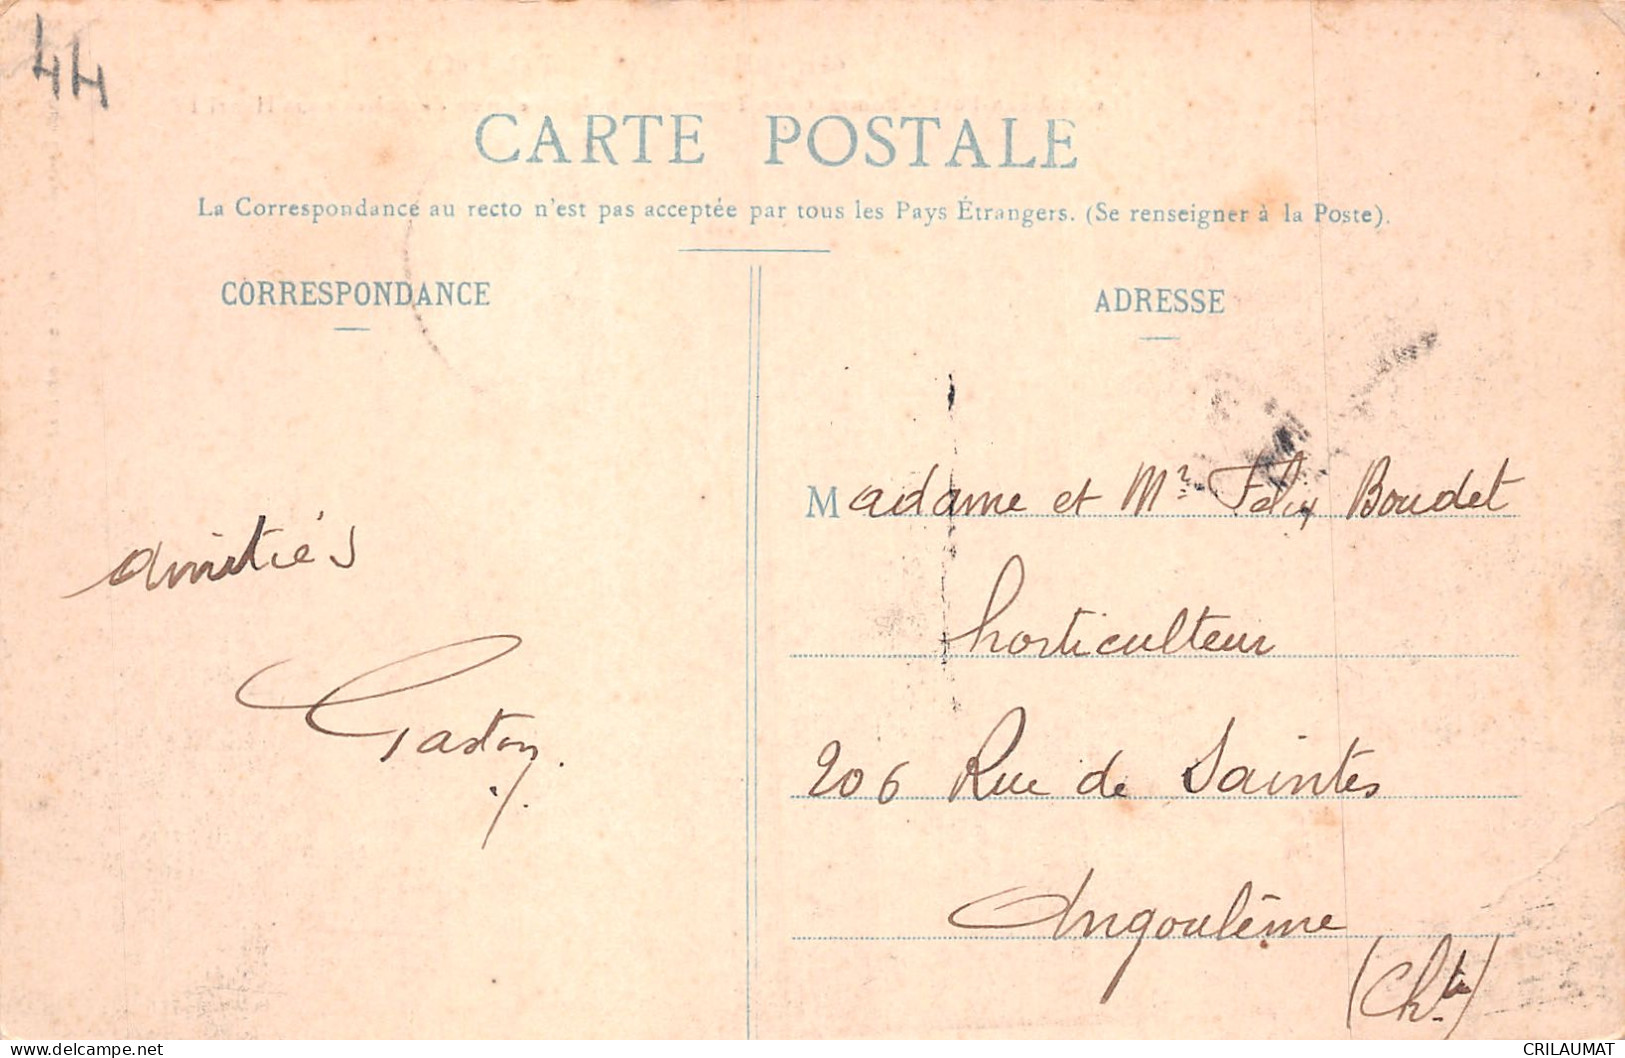 44
CARTE POSTALE
La Correspondance au recto n'est pas acceptée par tous les Pays Étrangers. (Se renseigner à la Poste).
CORRESPONDANCE
amitiés
Gaston.
ADRESSE
Madame et Mr Felix Boudet
horticulteur
206 Rue de Saintes
Angoulême
(Chte)
www.delcampe.net
CRILAUMAT